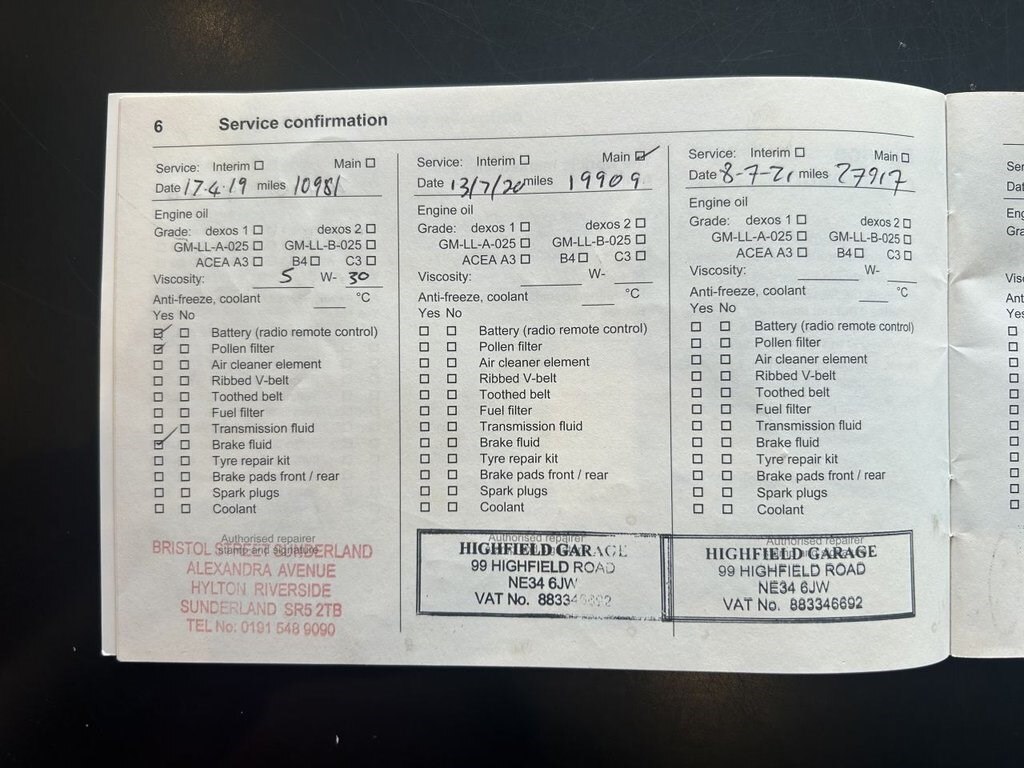 6 Service confirmation
Service: Interim ☐ Main ☐
Date 17.4.19 miles 10981
Engine oil
Grade: dexos 1 ☐ dexos 2 ☐
GM-LL-A-025 ☐ GM-LL-B-025 ☐
ACEA A3 ☐ B4 ☐ C3 ☐
Viscosity: 5 W- 30
Anti-freeze, coolant °C
Yes No
Battery (radio remote control)
Pollen filter
Air cleaner element
Ribbed V-belt
Toothed belt
Fuel filter
Transmission fluid
Brake fluid
Tyre repair kit
Brake pads front / rear
Spark plugs
Coolant
Authorised repairer
stamp and signature
BRISTOL SUNDERLAND
ALEXANDRA AVENUE
HYLTON RIVERSIDE
SUNDERLAND SR5 2TB
TEL No: 0191 548 9090
Service: Interim ☐ Main ☑
Date 13/7/20 miles 19909
Engine oil
Grade: dexos 1 ☐ dexos 2 ☐
GM-LL-A-025 ☐ GM-LL-B-025 ☐
ACEA A3 ☐ B4 ☐ C3 ☐
Viscosity: W-
Anti-freeze, coolant °C
Yes No
Battery (radio remote control)
Pollen filter
Air cleaner element
Ribbed V-belt
Toothed belt
Fuel filter
Transmission fluid
Brake fluid
Tyre repair kit
Brake pads front / rear
Spark plugs
Coolant
Authorised repairer
HIGHFIELD GARAGE
99 HIGHFIELD ROAD
NE34 6JW
VAT No. 883346692
Service: Interim ☐ Main ☐
Date 8-7-21 miles 27917
Engine oil
Grade: dexos 1 ☐ dexos 2 ☐
GM-LL-A-025 ☐ GM-LL-B-025 ☐
ACEA A3 ☐ B4 ☐ C3 ☐
Viscosity: W-
Anti-freeze, coolant °C
Yes No
Battery (radio remote control)
Pollen filter
Air cleaner element
Ribbed V-belt
Toothed belt
Fuel filter
Transmission fluid
Brake fluid
Tyre repair kit
Brake pads front / rear
Spark plugs
Coolant
Authorised repairer
HIGHFIELD GARAGE
99 HIGHFIELD ROAD
NE34 6JW
VAT No. 883346692